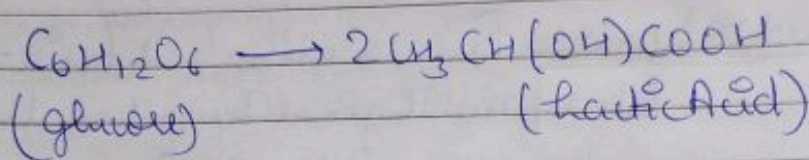 C₆H₁₂O₆ ⟶ 2CH₃CH(OH)COOH
(glucose) (Lactic Acid)